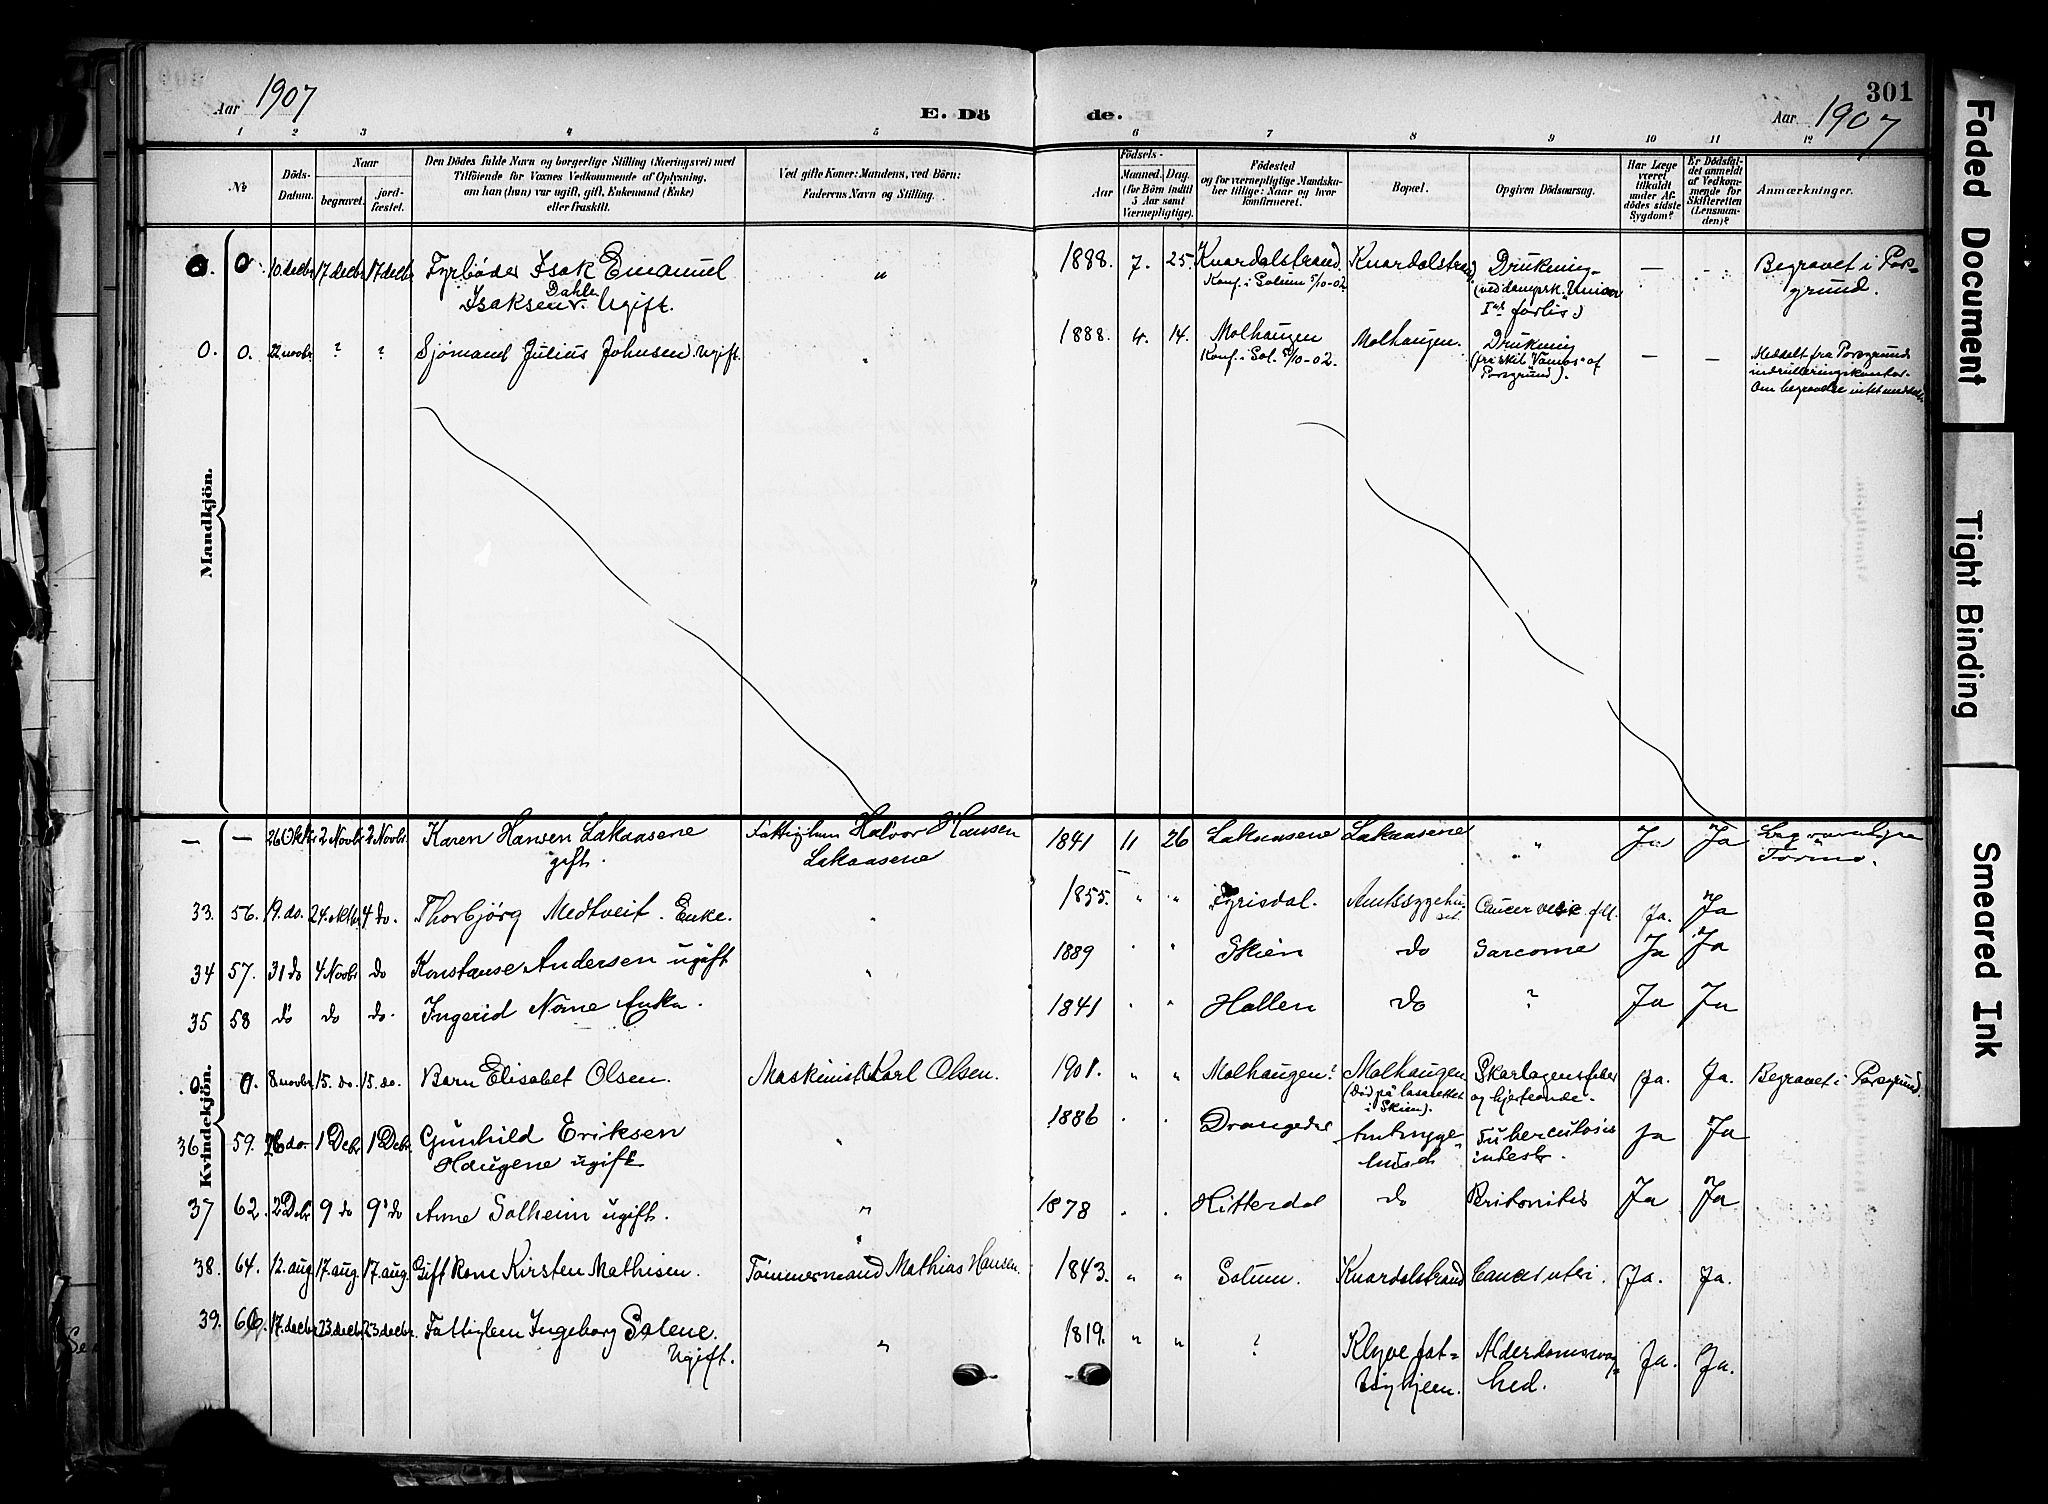 301
Aar 1907
E. Dö
de.
Aar 1907
1 2 3 4 5 6 7 8 9 10 11 12
No
Döds-Datum.
Naar
begravet.
jord-fæstet.
Den Dödes fulde Navn og borgerlige Stilling (Næringsvei) med
Tilföiende for Voxnes Vedkommende af Oplysning,
om han (hun) var ugift, gift, Enkemand (Enke)
eller fraskilt.
Ved gifte Koner: Mandens, ved Börn:
Faderens Navn og Stilling.
Födsels-
Aar
Maaned. Dag.
(for Börn indtil
5 Aar samt
Værnepligtige).
Födested
og for værnepligtige Mandska-
ber tillige: Naar og hvor
konfirmeret.
Bopæl.
Opgiven Dödsaarsag.
Har Læge
været
tilkaldt
under Af-
dödes sidste
Sygdom?
Er Dödsfal-
det anmeldt
af Vedkom-
mende for
Skifteretten
(Lensman-
den)?
Anmærkninger.
Mandkjön.
0. 0 10 decbr 17 decbr 17 decbr Fyrböder Isak Emanuel " 1888. 7. 25. Knardalstrand Knardalstrand Drukning — - Begravet i Pors-
Dahle
Isaksen. Ugift. Konf. i Solum 5/10-02 (ved dampsk. Union grund.
Ist forlis)
0. 0. 22 novbr ? ? Sjömand Julius Johnsen Ugift. " 1888. 4. 14. Molhaugen Molhaugen. Drukning — — Meddelt fra Porsgrund
Konf. i Sol. 5/10-02. (fra skib af indrulleringskontor.
Porsgrund). Om begravelse intet meddelt.
Kvindekjön.
— — 26 Oktr 2 Novbr 2 Novbr. Karen Hansen Lakaasene Fattiglem Halvor Hansen 1841 11 26 Lakaasene Lakaasene " " Ja Ja
gift. Lakaasene
33. 56. 19. do. 24. oktbr 4 do. Thorbjörg Medtveit. Enke. " 1855. " " Fyrisdal. Amtssygehu- Cancer Ja. Ja
set.
34 57. 31 do 4 Novbr do Konstanse Andersen ugift " 1889 " " Skien do Sarcome Ja Ja
35 58 do do do. Ingerid Nome Enke. 1841 " " Hollen do ? Ja Ja
0. 0. 8 novbr 15. do. 15. do. Barn Elisabet Olsen. Maskinist Karl Olsen. 1901. " " Molhaugen? Molhaugen Skarlagensfeber Ja. Ja. Begravet i Porsgrund.
(död på lasarettet og hjerteonde.
i Skien).
36 59. 26 do. 1 Debr 1 Debr. Gunhild Eriksen " 1886 . . Drangedal Amtssyge- Tuberculosis Ja Ja
Haugene ugift huset intest.
37 62. 2 Debr 9 do 9 do Anne Solheim ugift. " 1878 . . Hitterdal do Peritonitis Ja Ja
38. 64. 12. aug 17. aug. 17. aug. Gift kone Kirsten Mathisen. Tömmermand Mathias Hansen. 1843. " " Solum. Knardalstrand Cancer uteri. Ja. Ja.
39. 66. 17. decbr 23 decbr 23 decbr. Fattiglem Ingeborg Solene. " 1819. " " ? Klyve fat- Alderdomssvag- Ja. Ja.
Ugift. tighjem. hed.
Faded Document
Tight Binding
Smeared Ink